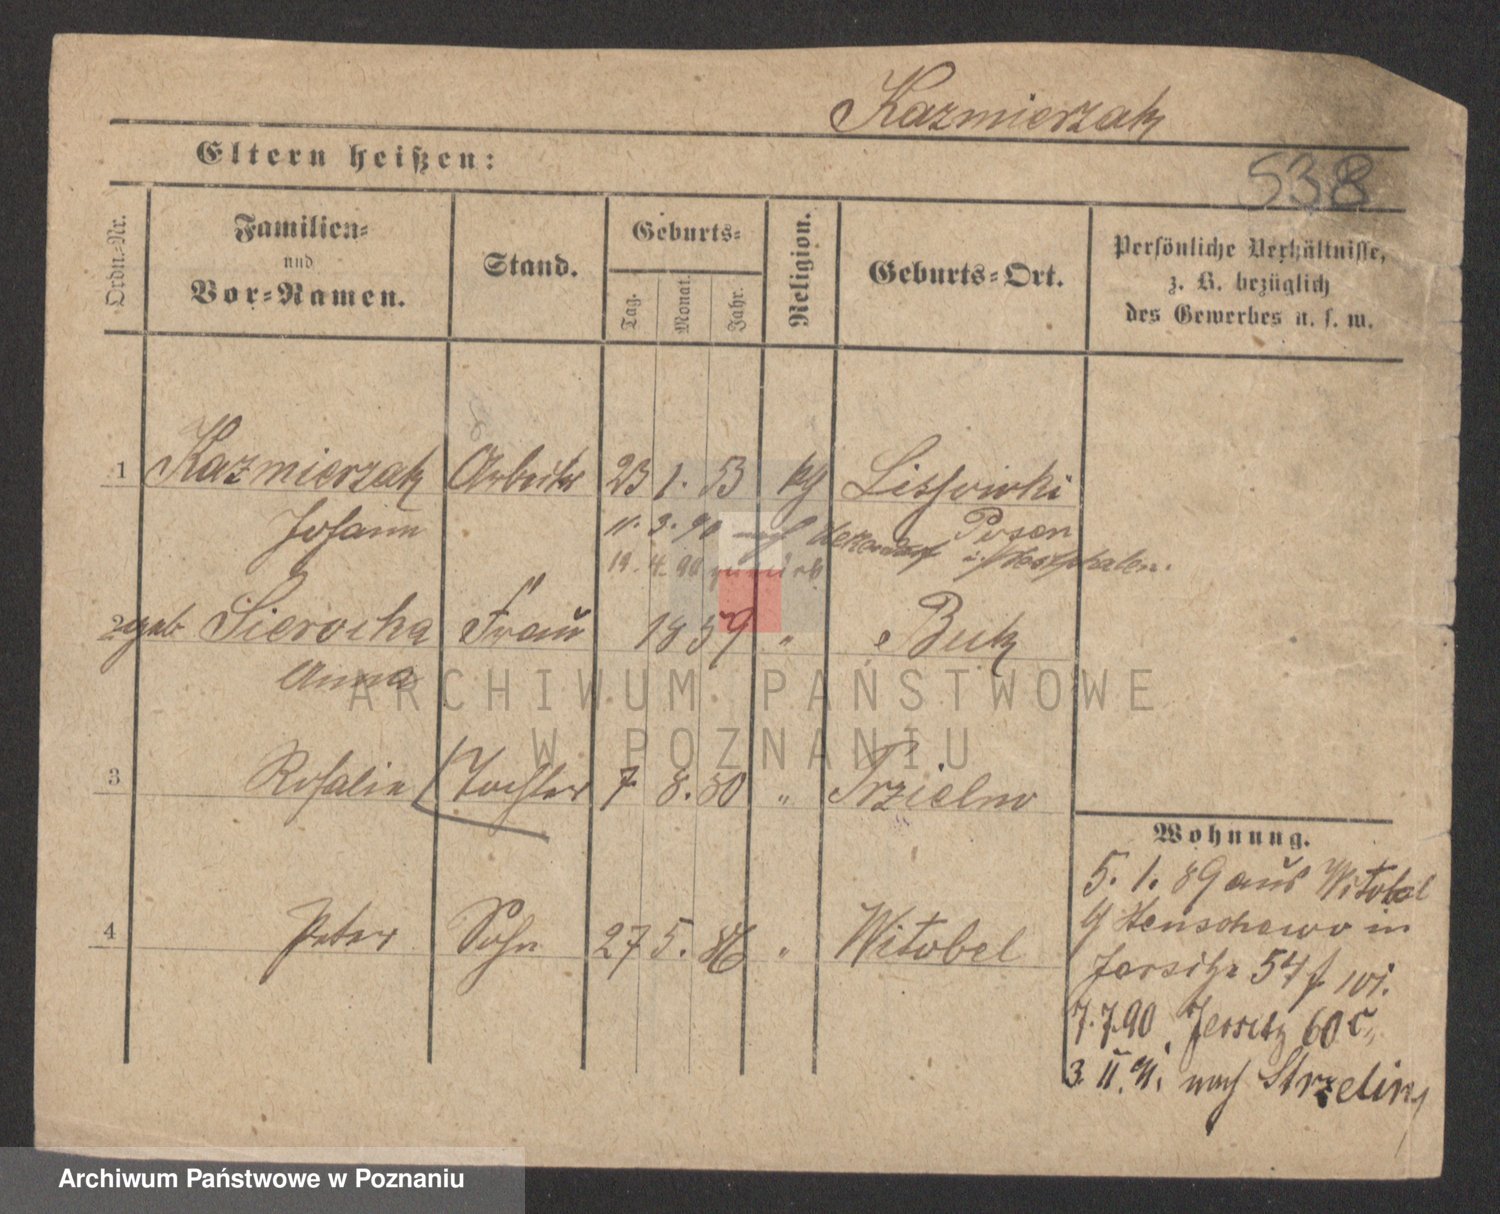 Kazmierzak
Eltern heißen:
538
Ordn.-Nr.
Familien-
und
Vor-Namen.
Stand.
Geburts-
Tag.
Monat.
Jahr.
Religion.
Geburts-Ort.
Persönliche Verhältnisse,
z. B. bezüglich
des Gewerbes u. s. w.
1 Kazmierzak Arbeiter 23 1. 53 kg Lissowki
Johann 11. 3. 90 nach Posen
i/Westphalen.
19. 4. 90 zurück
2 geb Sierocka Frau 1859 " Buk
Anna
ARCHIWUM PAŃSTWOWE
W POZNANIU
3 Rosalie Tochter 7 8. 80 " Trzielno
Wohnung.
5. 1. 89 aus Witobel
4 Peter Sohn 27 5. 86 " Witobel
b/ Henschewo in
Jersitz 54 f wi.
7. 7. 90 Jersitz 60 c,
3. II. 91. nach Strzeliny
Archiwum Państwowe w Poznaniu